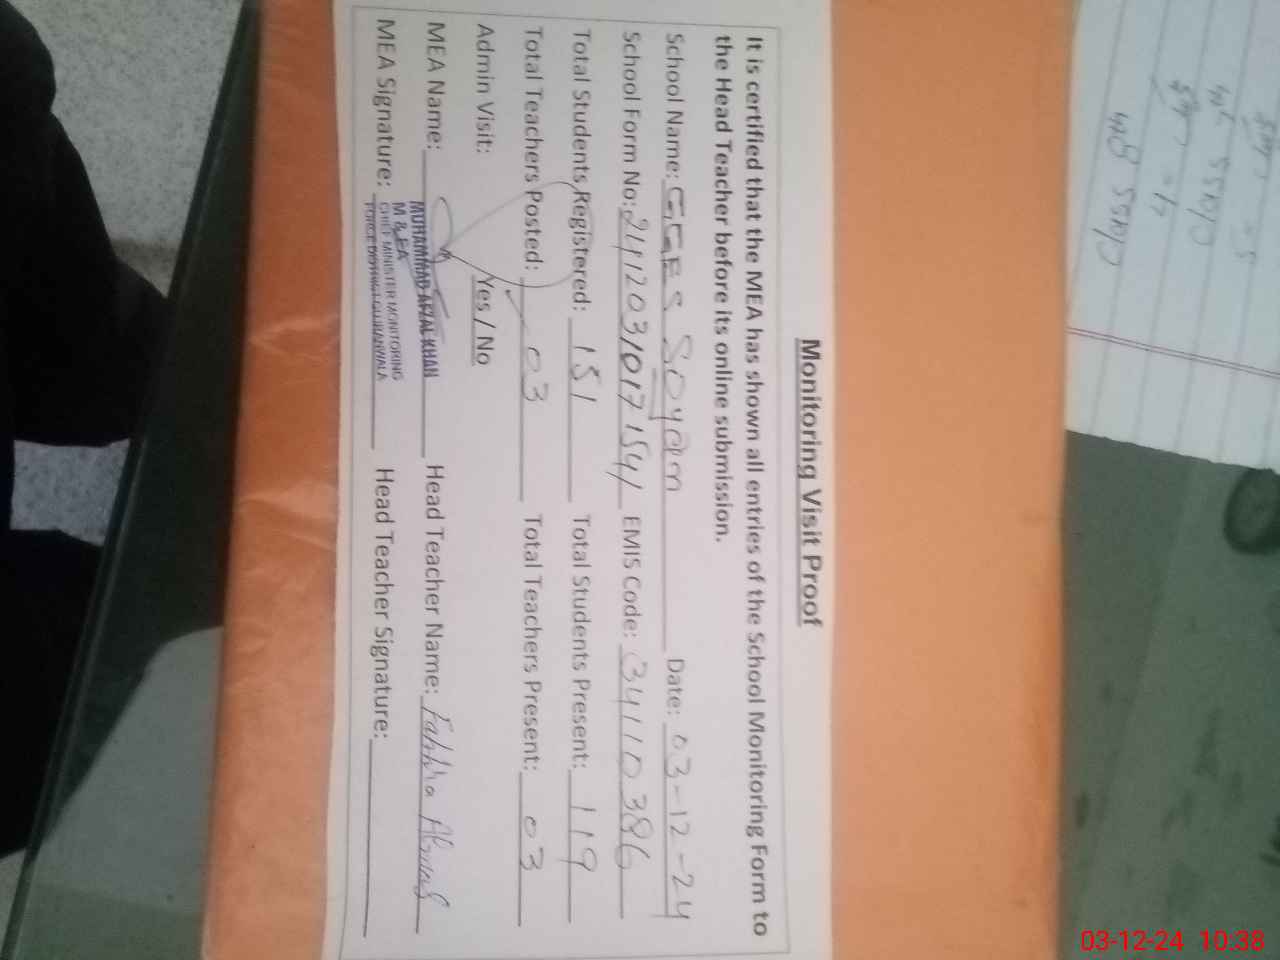 Monitoring Visit Proof
It is certified that the MEA has shown all entries of the School Monitoring Form to
the Head Teacher before its online submission.
School Name: GGES Soyam Date: 03-12-24
School Form No: EMIS Code: 34110386
Total Students Registered: 151 Total Students Present: 119
Total Teachers Posted: 03 Total Teachers Present: 03
Admin Visit: Yes / No
MEA Name: Head Teacher Name:
MEA Signature: Head Teacher Signature:
MUHAMMAD AFZAL KHAN
M & EA
CHIEF MINISTER MONITORING
FORCE DISTRICT GUJRANWALA
03-12-24 10:38